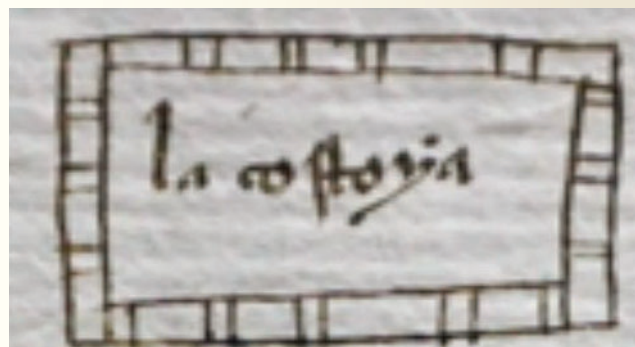 la costoya